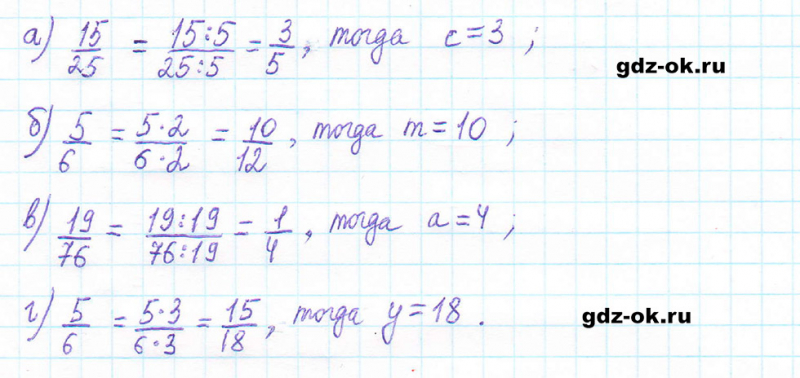 а) 15/25 = 15:5/25:5 = 3/5, тогда c=3;
gdz-ok.ru
б) 5/6 = 5·2/6·2 = 10/12, тогда m=10;
в) 19/76 = 19:19/76:19 = 1/4, тогда a=4;
г) 5/6 = 5·3/6·3 = 15/18, тогда y=18.
gdz-ok.ru